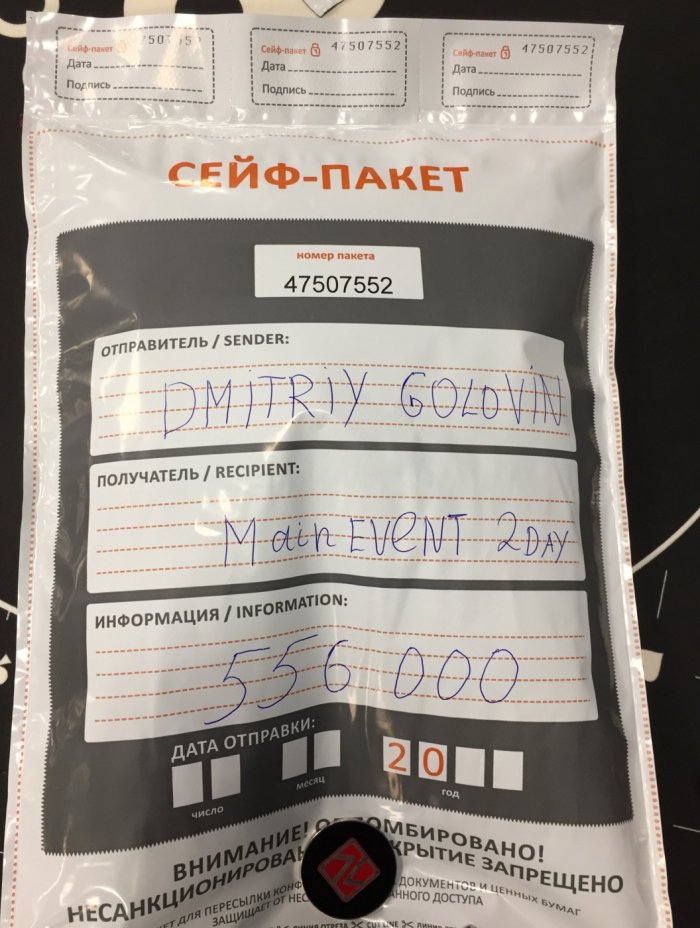 Сейф-пакет 47507552
Дата
Подпись
Сейф-пакет 47507552
Дата
Подпись
Сейф-пакет 47507552
Дата
Подпись
СЕЙФ-ПАКЕТ
номер пакета
47507552
ОТПРАВИТЕЛЬ / SENDER:
DMITRIY GOLOVIN
ПОЛУЧАТЕЛЬ / RECIPIENT:
Main EVENT 2DAY
ИНФОРМАЦИЯ / INFORMATION:
556 000
ДАТА ОТПРАВКИ:
20
число месяц год
ВНИМАНИЕ!
НЕСАНКЦИОНИРОВАН КРЫТИЕ ЗАПРЕЩЕНО
ДЛЯ ПЕРЕСЫЛКИ ДОКУМЕНТОВ И ЦЕННЫХ БУМАГ
ЗАЩИЩАЕТ ОТ ДОСТУПА
ЛИНИЯ ОТРЕЗА CUT LINE